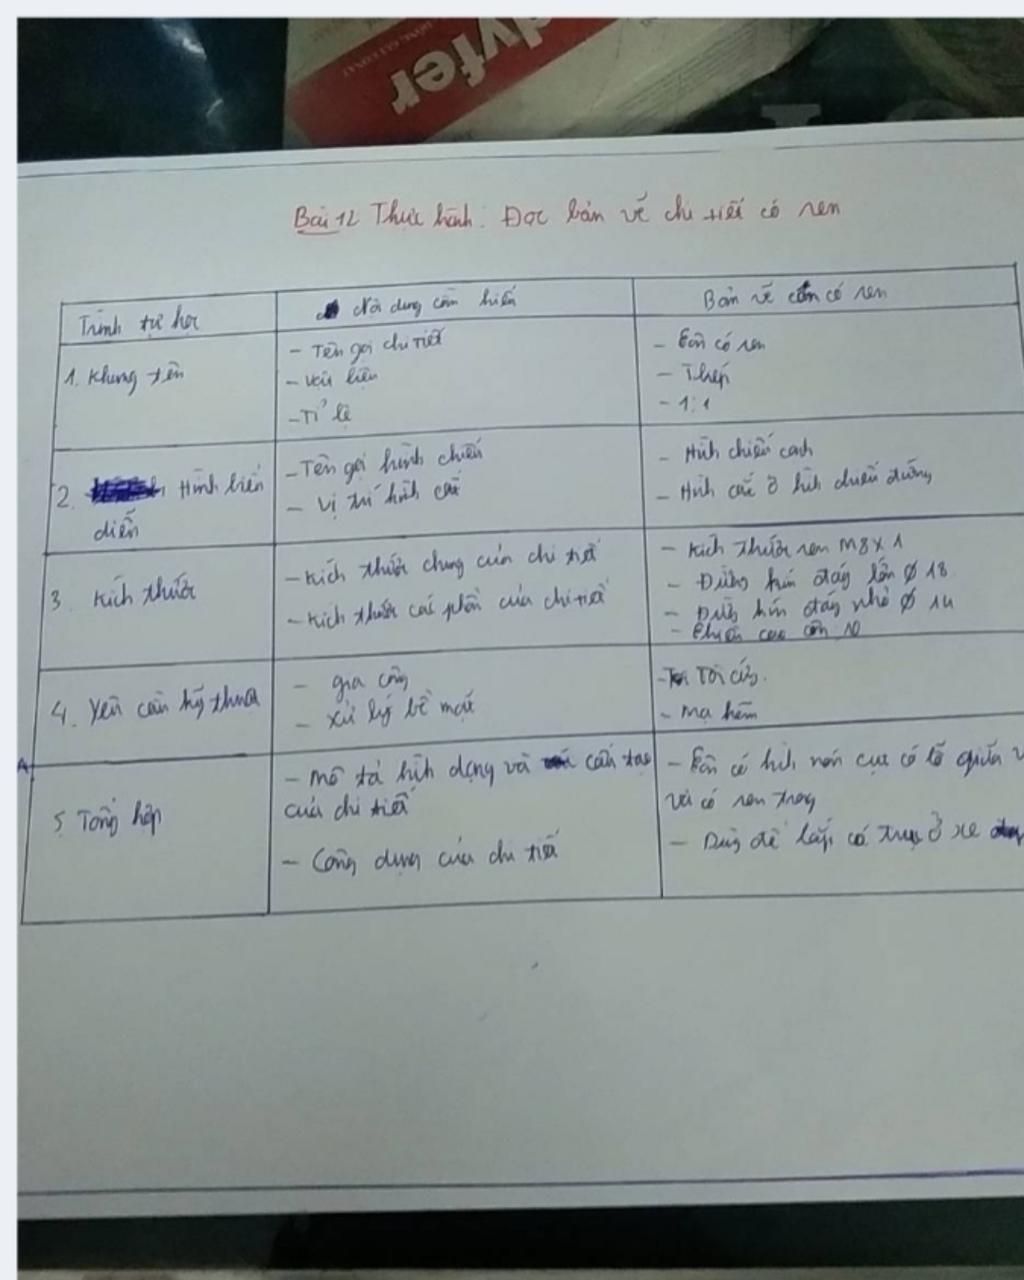 dyfer
Bài 12 Thực hành: Đọc bản vẽ chi tiết có ren
Trình tự học
Nội dung cần hiểu
Bản vẽ côn có ren
1. Khung tên
- Tên gọi chi tiết
- vật liệu
- Tỉ lệ
- Côn có ren
- Thép
- 1:1
2. Hình biểu
diễn
- Tên gọi hình chiếu
- Vị trí hình cắt
- Hình chiếu cạnh
- Hình cắt ở hình chiếu đứng
3. Kích thước
- Kích thước chung của chi tiết
- Kích thước các phần của chi tiết
- Kích thước ren M8x1
- Đường kính đáy lớn Ø 18
- Đường kính đáy nhỏ Ø 14
- Chiều cao côn 10
4. Yêu cầu kỹ thuật
- gia công
- xử lý bề mặt
- Tôi cứng.
- Mạ kẽm
5. Tổng hợp
- Mô tả hình dạng và cấu tạo
của chi tiết
- Công dụng của chi tiết
- Côn có hình nón cụt có lỗ giữa
và có ren trong
- Dùng để lắp có trục ở xe